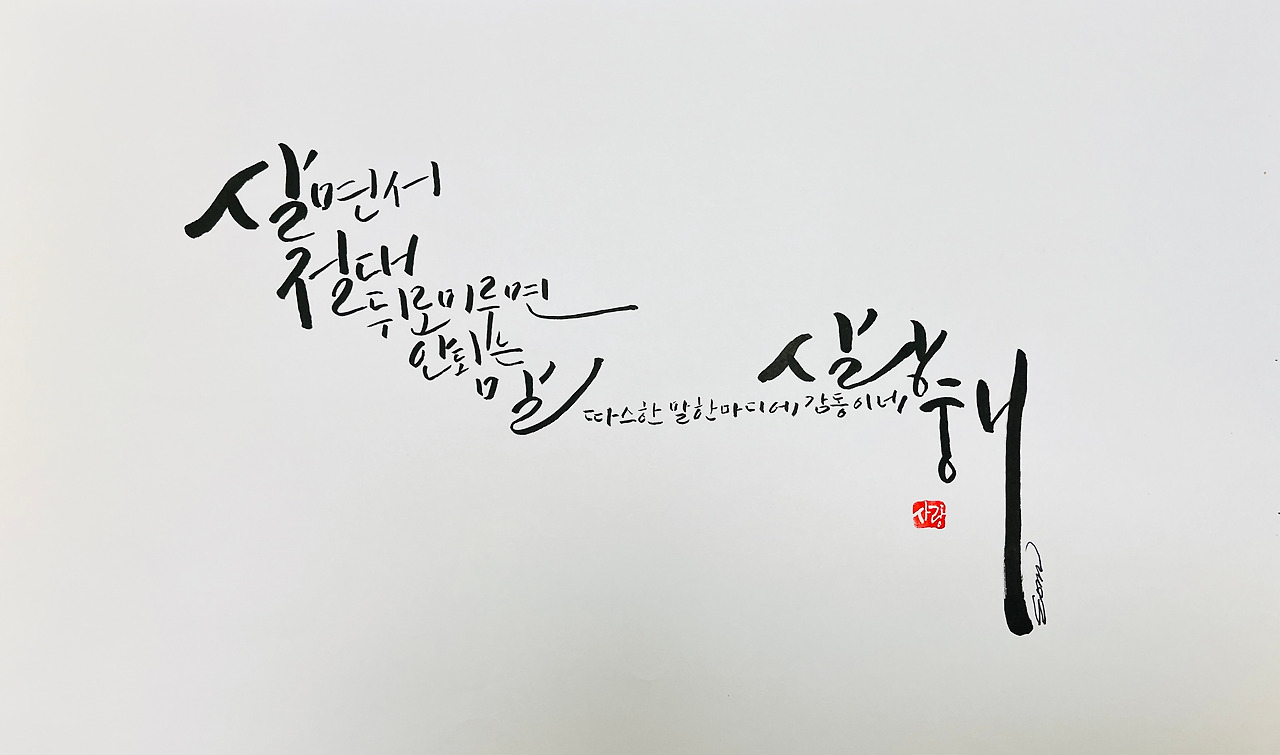 살면서
절대
뒤로미루면
안되는
말
따스한 말한마디에, 감동이네,
사랑해
사랑
Eom